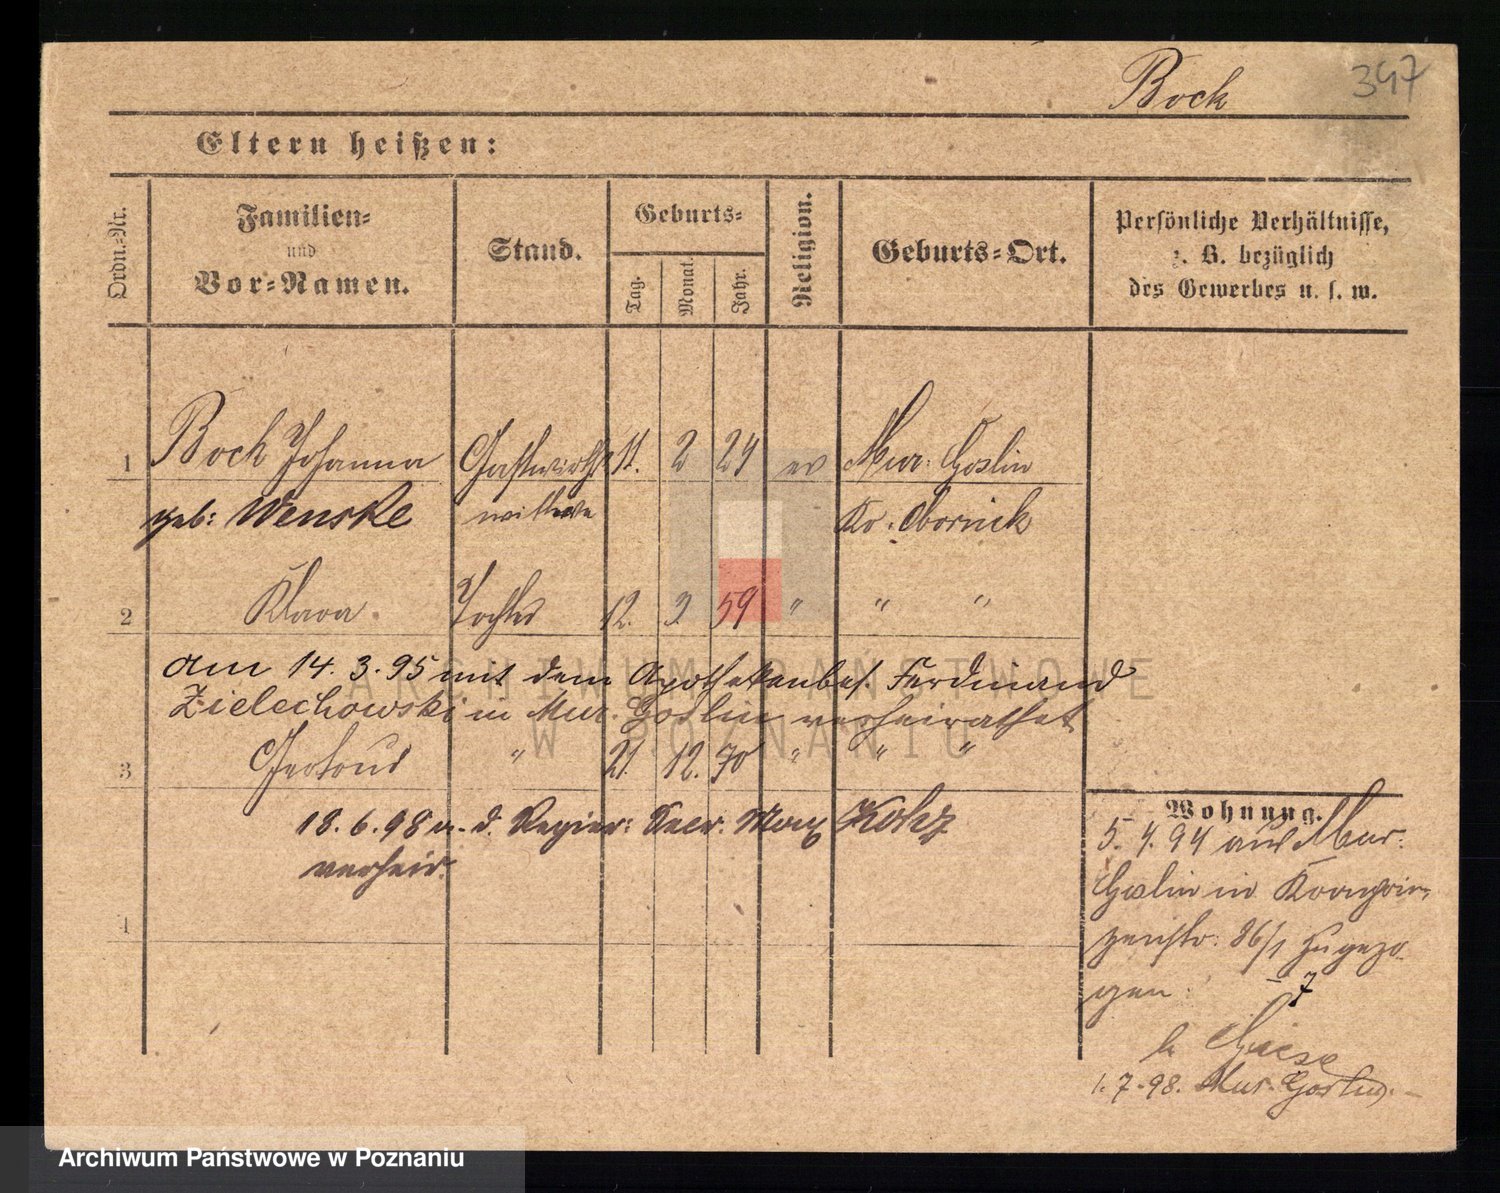 Bock 347
Eltern heißen:
Ordn.-Nr.
Familien-
und
Vor-Namen.
Stand.
Geburts-
Tag.
Monat.
Jahr.
Religion.
Geburts-Ort.
Persönliche Verhältnisse,
z. B. bezüglich
des Gewerbes u. s. w.
1 Bock Johanna Gastwirths 11. 2 24 ev Mur: Goslin
geb: Wenske wittwe Kr. Obornick
2 Klara. Tochter 12. 3. 59 " " "
am 14. 3. 95 mit dem Apothekenbes. Ferdinand
Zielechowski in Mur. Goslin verheirathet
3 Gertrud " 21. 12. 70 " " "
18. 6. 98 m. d. Regier: Secr. Max
verheir.
4
Wohnung.
5. 4. 94 aus Mur:
Goslin in Kronprin-
zenstr: 86/1 zugezo-
gen.
b Giese
1. 7. 98. Mur. Goslin.
ARCHIWUM PAŃSTWOWE
W POZNANIU
Archiwum Państwowe w Poznaniu